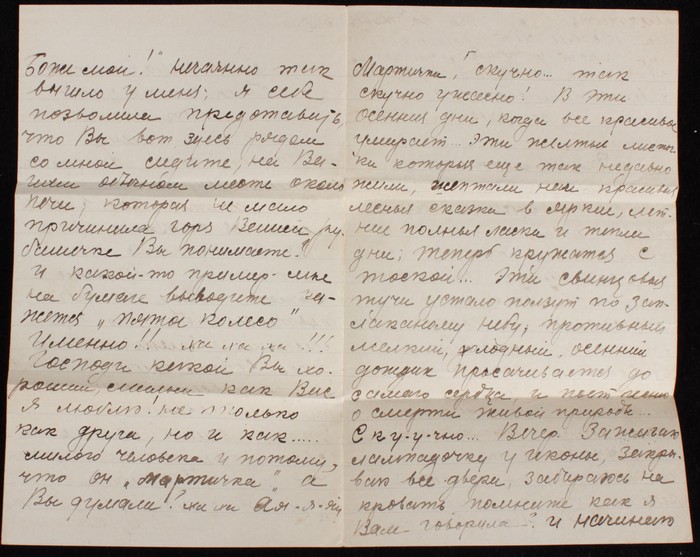 Боже мой!" нечаянно так
вышло у меня; я себе
позволила представить,
что Вы вот здесь рядом
со мной сидите, на Ва-
шем обычном месте около
печи, которая не мало
причинила горя Вашей ру-
башичке Вы понимаете?
и какой-то пример мне
на бумаге выводите ка-
жется „пятое колесо"
Именно!! ха ха ха!!!
Господи какой Вы хо-
роший, милый как Вас
я люблю! не только
как друга, но и как.....
милого человека и потому,
что он „Мартичка" а
Вы думали? ха ха Ая-я-яй
Мартичка, скучно... так
скучно ужасно! В эти
осенния дни, когда все красивое
умирает... Эти желтые листо-
чки которыя еще так недавно
жили, шептали нам красивыя
лесныя сказки в яркие, лет-
ние полныя ласки и тепла
дни; теперь кружатся с
тоской... Эти свинцовыя
тучи устало ползут по зап-
лаканому небу; противный
мелкий, холодный, осенний
дождик просачивается до
самого сердца, и поет песню
о смерти живой природы...
Ску-у-чно... Вечер. Зажигаю
лампадочку у иконы, закры-
ваю все двери, забираюсь на
кровать помните как я
Вам говорила? и начинаю